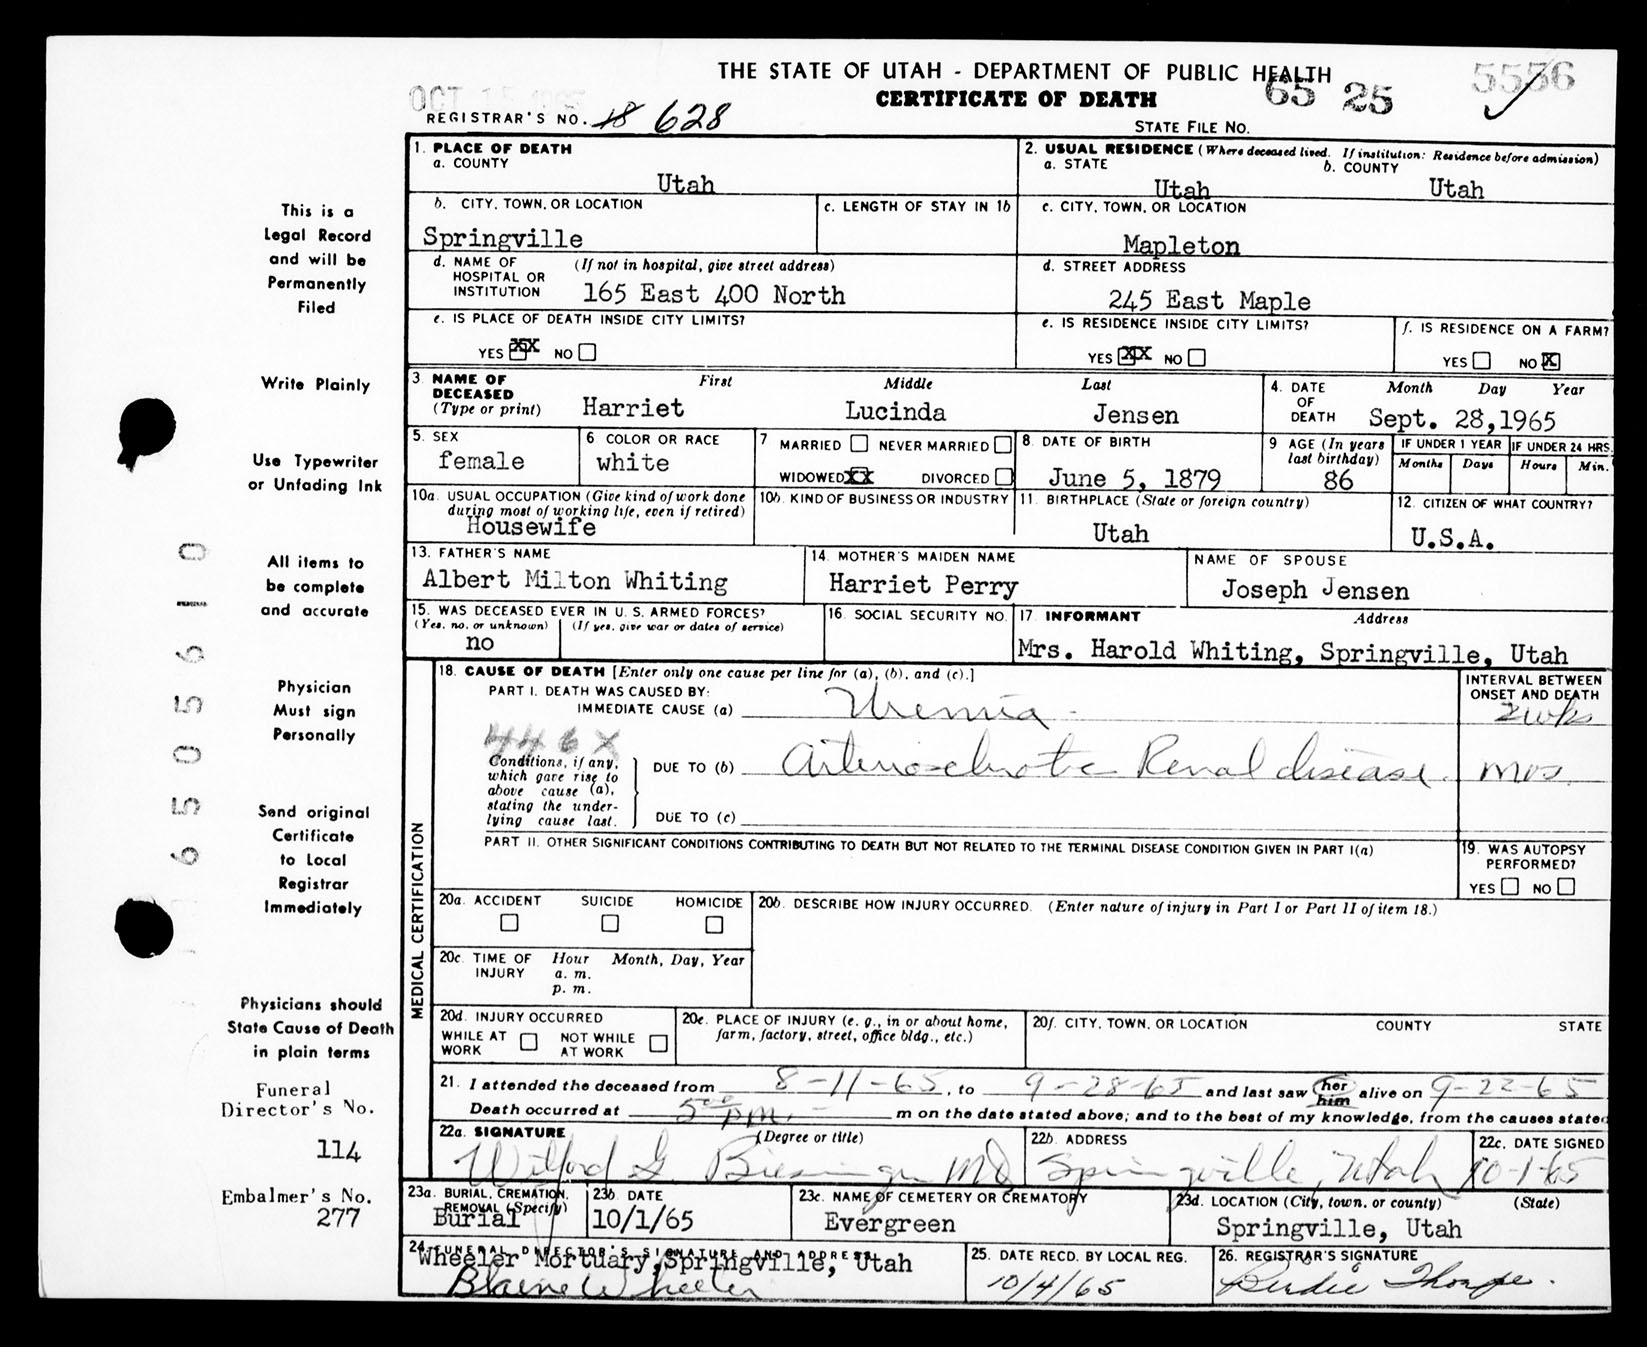 THE STATE OF UTAH - DEPARTMENT OF PUBLIC HEALTH
CERTIFICATE OF DEATH
65 25 5556
OCT 15 1965
REGISTRAR'S NO. 18 628
STATE FILE NO.
This is a
Legal Record
and will be
Permanently
Filed
Write Plainly
Use Typewriter
or Unfading Ink
All items to
be complete
and accurate
Physician
Must sign
Personally
Send original
Certificate
to Local
Registrar
Immediately
Physicians should
State Cause of Death
in plain terms
Funeral
Director's No.
114
Embalmer's No.
277
1. PLACE OF DEATH
a. COUNTY
Utah
2. USUAL RESIDENCE (Where deceased lived. If institution: Residence before admission)
a. STATE b. COUNTY
Utah Utah
b. CITY, TOWN, OR LOCATION
Springville
c. LENGTH OF STAY IN 1b
c. CITY, TOWN, OR LOCATION
Mapleton
d. NAME OF HOSPITAL OR INSTITUTION (If not in hospital, give street address)
165 East 400 North
d. STREET ADDRESS
245 East Maple
e. IS PLACE OF DEATH INSIDE CITY LIMITS?
YES XX NO
e. IS RESIDENCE INSIDE CITY LIMITS?
YES XX NO
f. IS RESIDENCE ON A FARM?
YES NO X
3. NAME OF DECEASED (Type or print)
First Middle Last
Harriet Lucinda Jensen
4. DATE OF DEATH
Month Day Year
Sept. 28,1965
5. SEX
female
6 COLOR OR RACE
white
7 MARRIED NEVER MARRIED
WIDOWED XX DIVORCED
8. DATE OF BIRTH
June 5, 1879
9 AGE (In years last birthday)
86
IF UNDER 1 YEAR
Months Days
IF UNDER 24 HRS.
Hours Min.
10a. USUAL OCCUPATION (Give kind of work done during most of working life, even if retired)
Housewife
10b. KIND OF BUSINESS OR INDUSTRY
11. BIRTHPLACE (State or foreign country)
Utah
12. CITIZEN OF WHAT COUNTRY?
U.S.A.
13. FATHER'S NAME
Albert Milton Whiting
14. MOTHER'S MAIDEN NAME
Harriet Perry
NAME OF SPOUSE
Joseph Jensen
15. WAS DECEASED EVER IN U.S. ARMED FORCES?
(Yes, no, or unknown) (If yes, give war or dates of service)
no
16. SOCIAL SECURITY NO.
17. INFORMANT Address
Mrs. Harold Whiting, Springville, Utah
MEDICAL CERTIFICATION
18. CAUSE OF DEATH [Enter only one cause per line for (a), (b), and (c).]
INTERVAL BETWEEN ONSET AND DEATH
PART I. DEATH WAS CAUSED BY:
IMMEDIATE CAUSE (a) Uremia 2 wks
446X
Conditions, if any, which gave rise to above cause (a), stating the underlying cause last.
DUE TO (b) Arteriosclerotic Renal disease. mos.
DUE TO (c)
PART II. OTHER SIGNIFICANT CONDITIONS CONTRIBUTING TO DEATH BUT NOT RELATED TO THE TERMINAL DISEASE CONDITION GIVEN IN PART I(a)
19. WAS AUTOPSY PERFORMED?
YES NO
20a. ACCIDENT SUICIDE HOMICIDE
20b. DESCRIBE HOW INJURY OCCURRED. (Enter nature of injury in Part I or Part II of item 18.)
20c. TIME OF INJURY Hour Month, Day, Year
a. m.
p. m.
20d. INJURY OCCURRED
WHILE AT WORK NOT WHILE AT WORK
20e. PLACE OF INJURY (e. g., in or about home, farm, factory, street, office bldg., etc.)
20f. CITY, TOWN, OR LOCATION COUNTY STATE
21. I attended the deceased from 8-11-65, to 9-28-65 and last saw her him alive on 9-22-65
Death occurred at 5:00 pm. m on the date stated above; and to the best of my knowledge, from the causes stated
22a. SIGNATURE (Degree or title)
Wilford G. Biesinger MD
22b. ADDRESS
Springville, Utah
22c. DATE SIGNED
10-1-65
23a. BURIAL, CREMATION, REMOVAL (Specify)
Burial
23b. DATE
10/1/65
23c. NAME OF CEMETERY OR CREMATORY
Evergreen
23d. LOCATION (City, town, or county) (State)
Springville, Utah
24. FUNERAL DIRECTOR'S SIGNATURE AND ADDRESS
Wheeler Mortuary, Springville, Utah
Blaine Wheeler
25. DATE RECD. BY LOCAL REG.
10/4/65
26. REGISTRAR'S SIGNATURE
Birdie Thorpe.